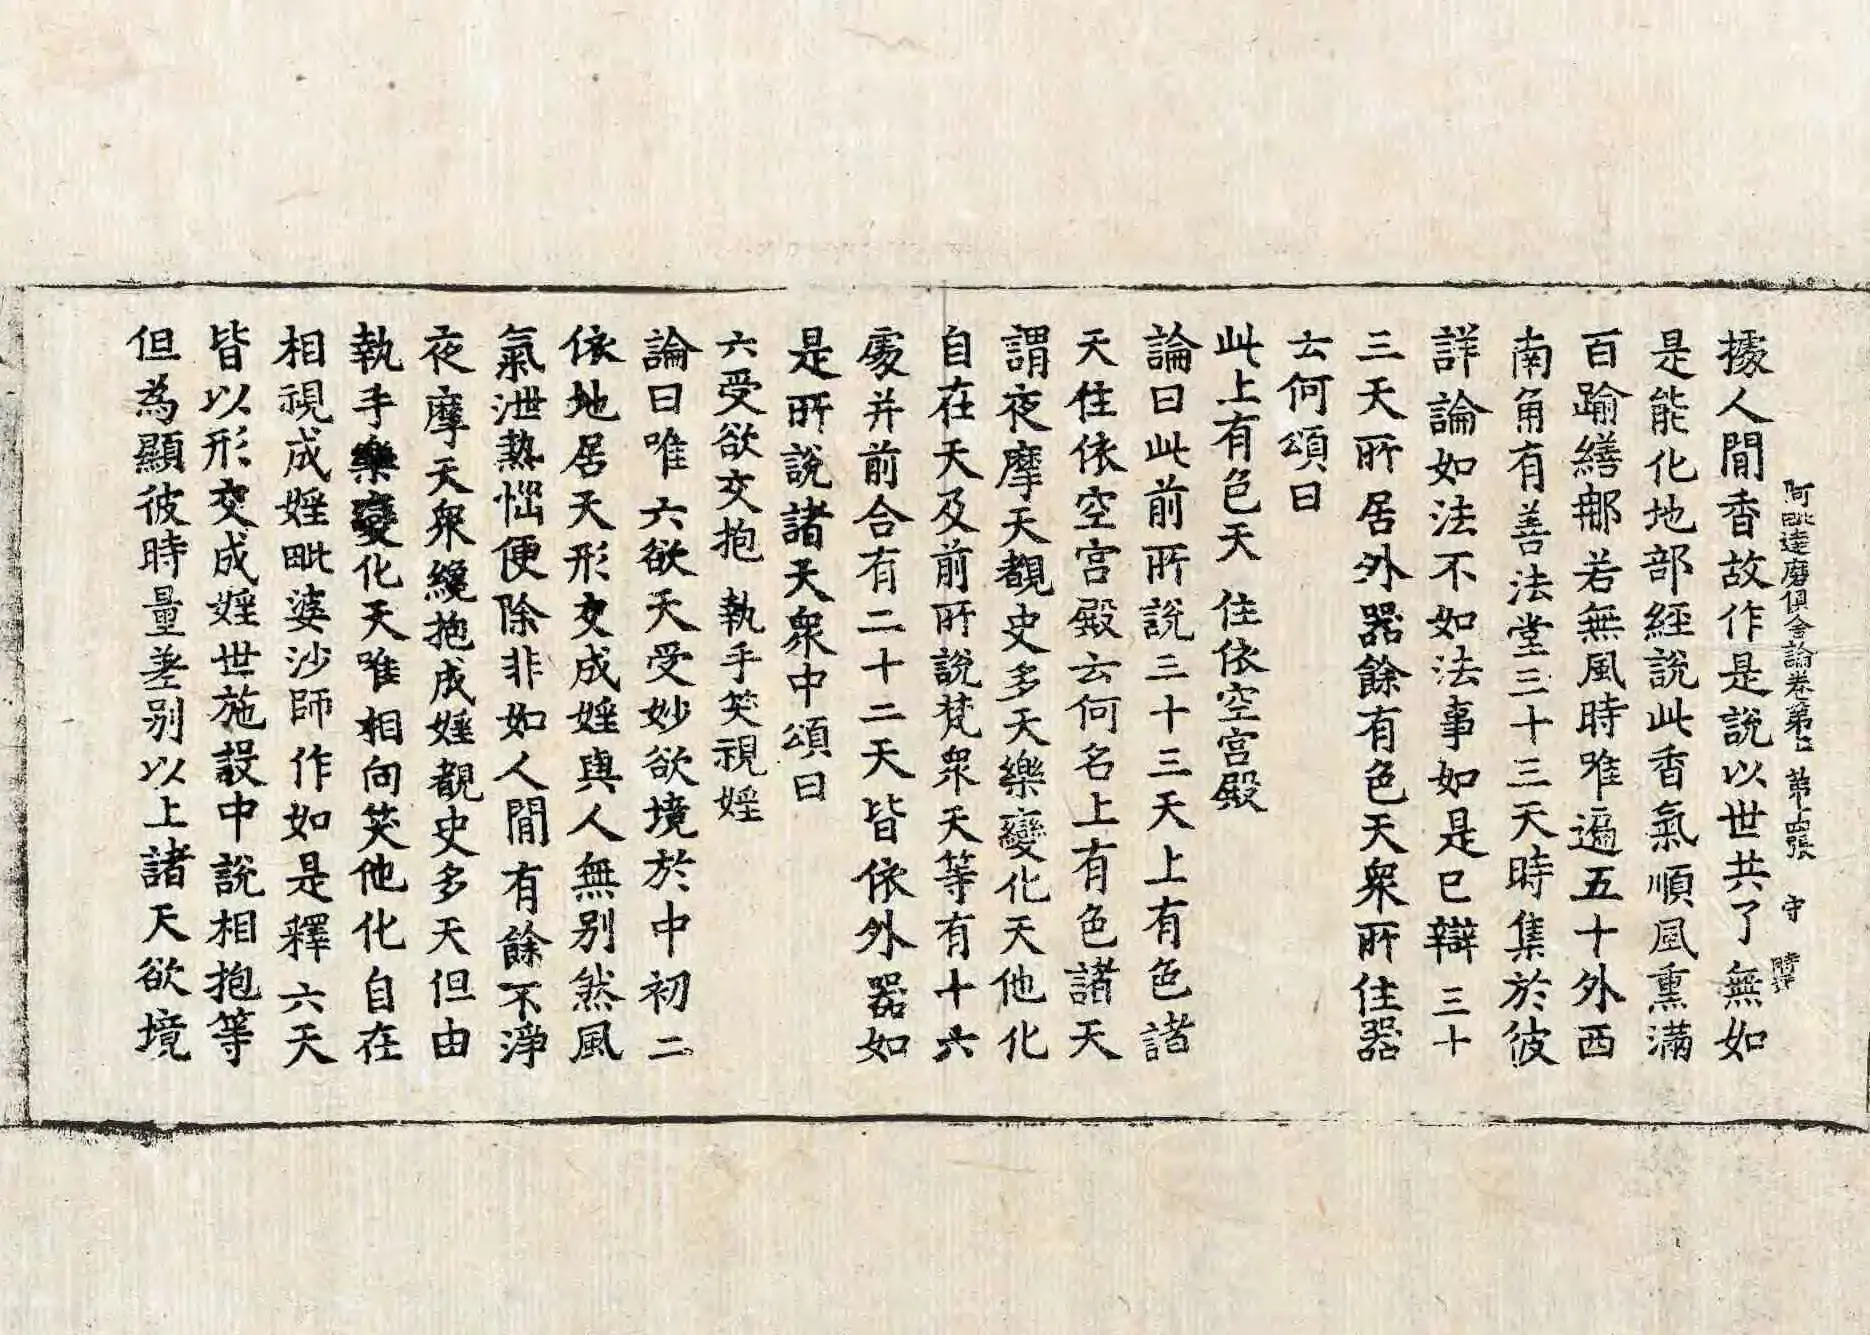 阿毗達磨俱舍論卷第七 第十四張 守
據人間香故作是說以世共了無如
是能化地部經說此香氣順風熏滿
百踰繕那若無風時唯遍五十外西
南角有善法堂三十三天時集於彼
詳論如法不如法事如是已辯三十
三天所居外器餘有色天衆所住器
云何頌曰
此上有色天 住依空宮殿
論曰此前所說三十三天上有色諸
天住依空宮殿云何名上有色諸天
謂夜摩天覩史多天樂變化天他化
自在天及前所說梵衆天等有十六
處并前合有二十二天皆依外器如
是所說諸天衆中頌曰
六受欲交抱 執手笑視婬
論曰唯六欲天受妙欲境於中初二
依地居天形交成婬與人無別然風
氣泄熱惱便除非如人間有餘不淨
夜摩天衆纔抱成婬覩史多天但由
執手樂變化天唯相向笑他化自在
相視成婬毗婆沙師作如是釋六天
皆以形交成婬世施設中說相抱等
但為顯彼時量差別以上諸天欲境